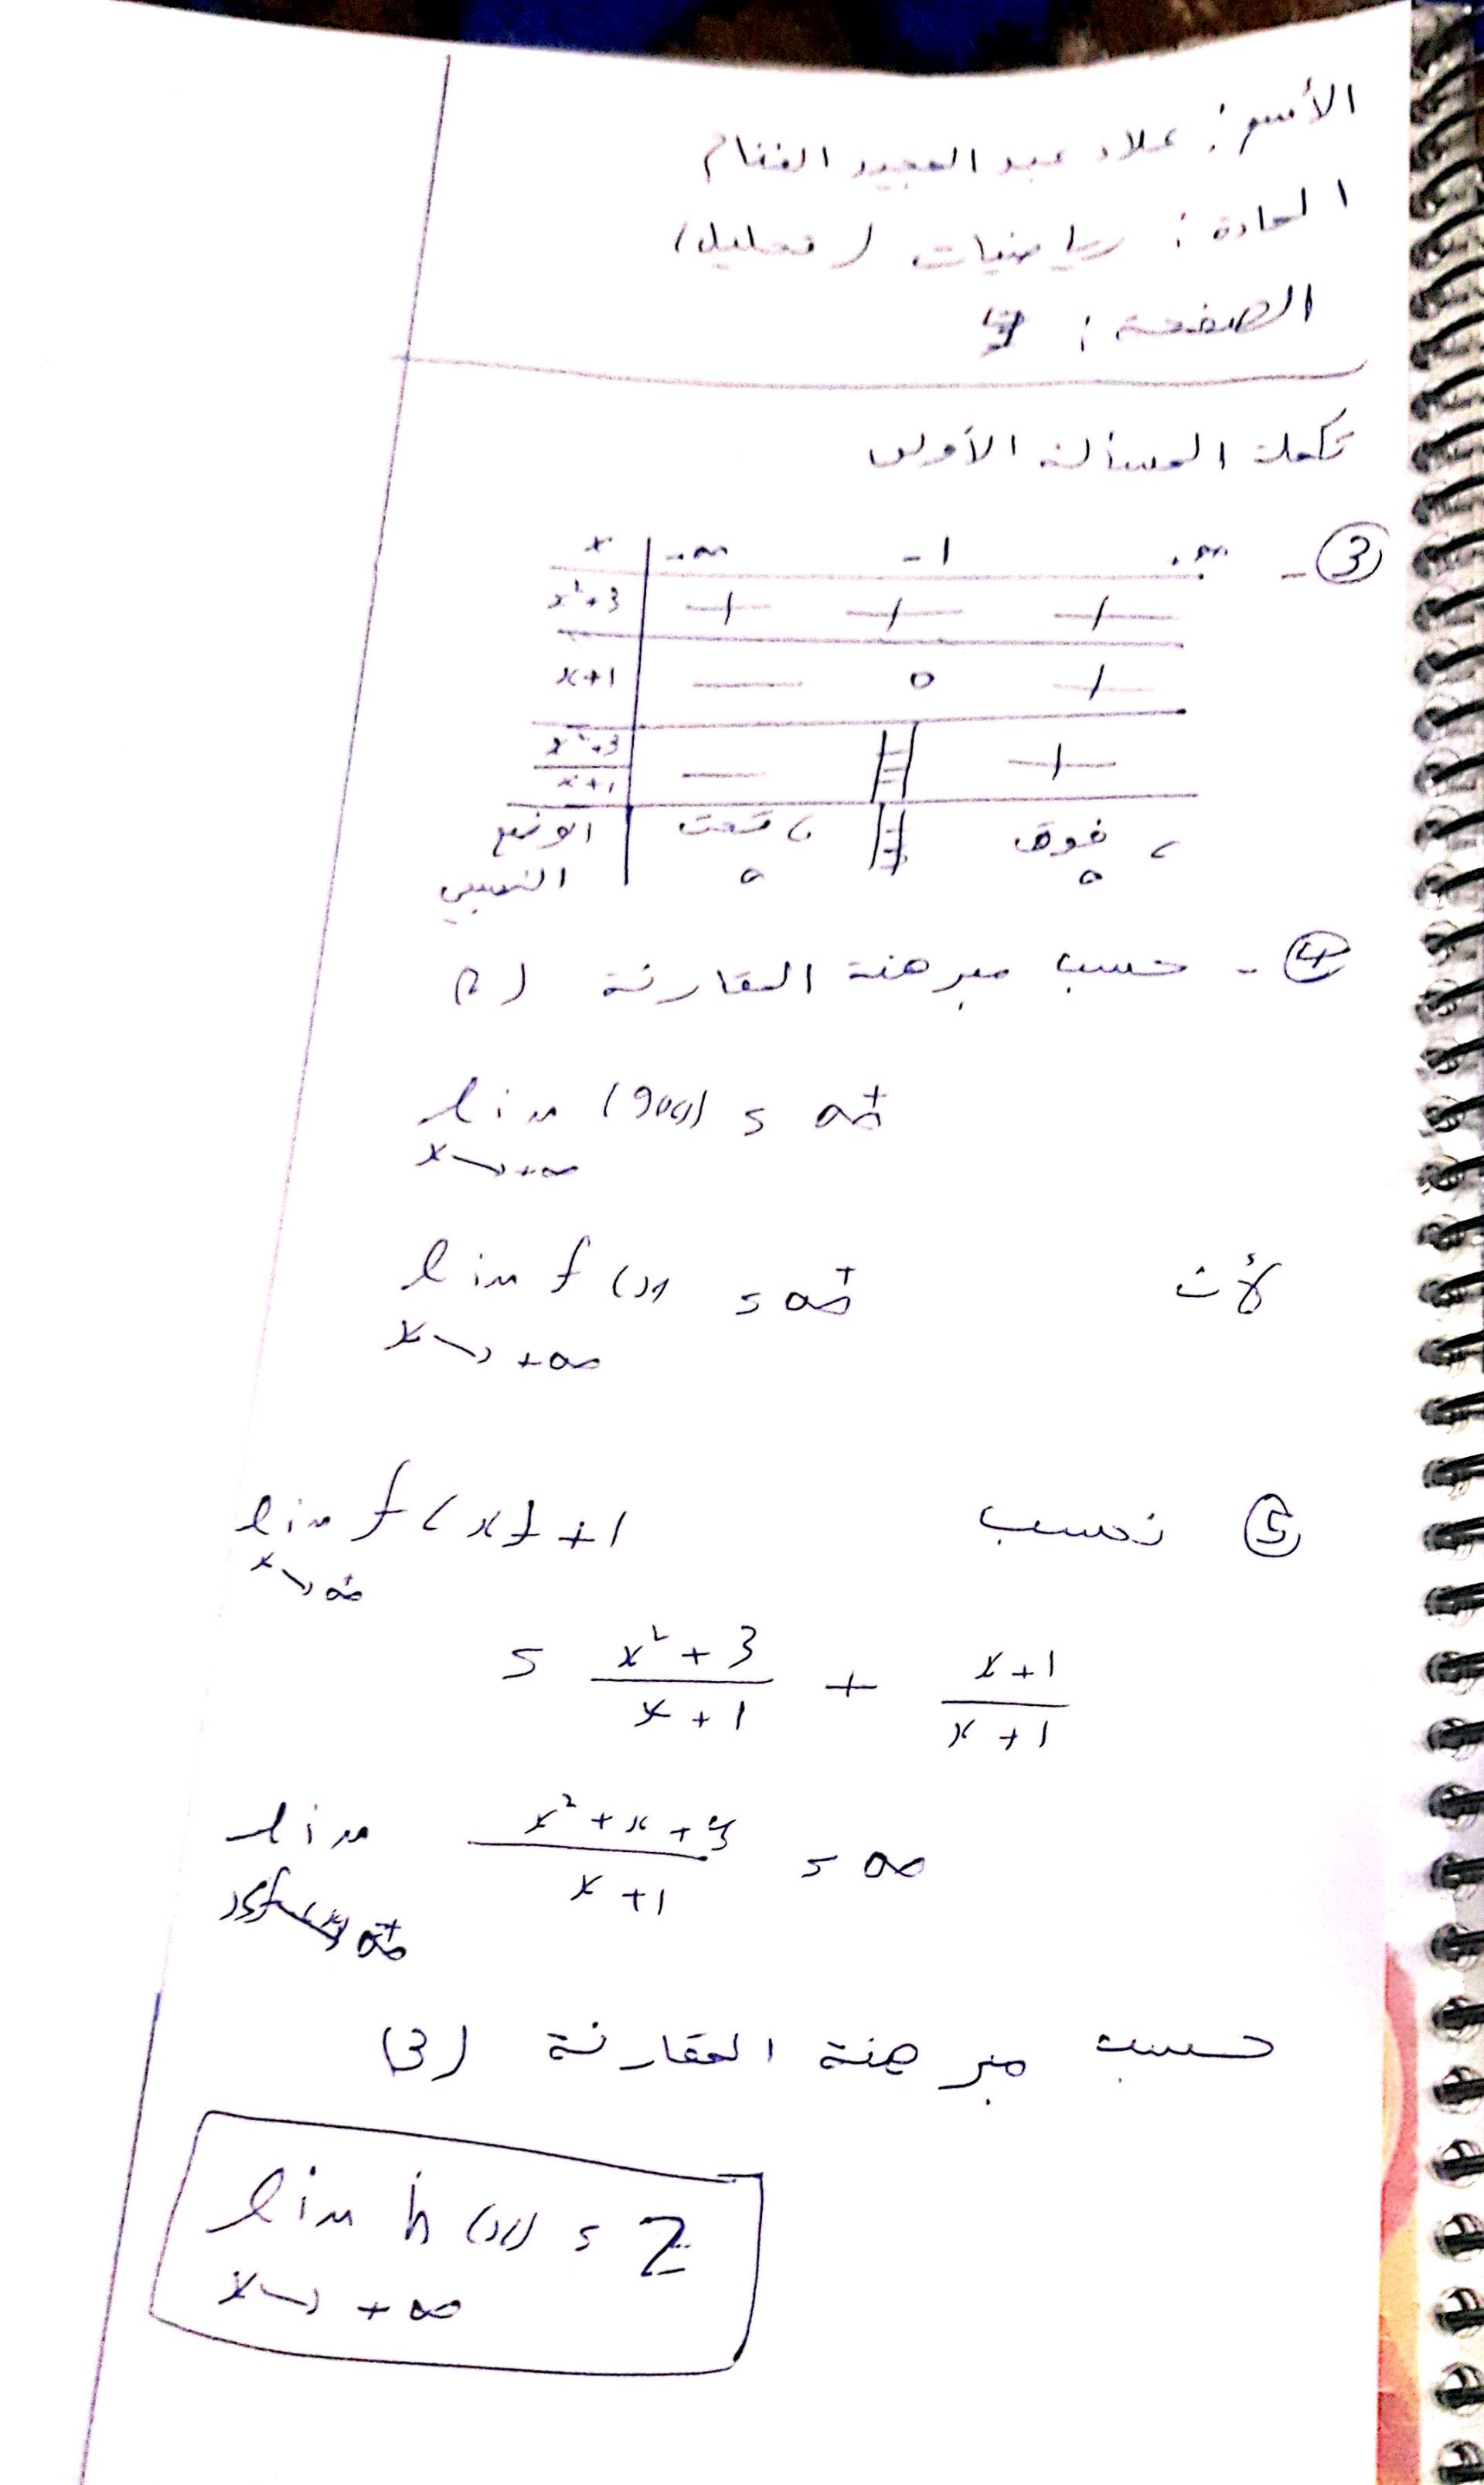 الأسم : علاء عبد المجيد الغنام
المادة : رياضيات (تحليل)
الصفحة :
تكملة المسألة الأولى
③ -
x | -∞ -1 +∞
x²+3 | + + +
x+1 | - 0 +
x²+3 / x+1 | - || +
الوضع النسبي | C تحت Δ || C فوق Δ
④ - حسب مبرهنة المقارنة (2)
lim (g(x)) = +∞
x→+∞
لأن lim f(x) = +∞
x→+∞
⑤ نحسب lim f(x) + 1
x→+∞
= x²+3 / x+1 + x+1 / x+1
lim x²+x+4 / x+1 = ∞
+∞
حسب مبرهنة المقارنة (3)
lim h(x) = 2
x→+∞